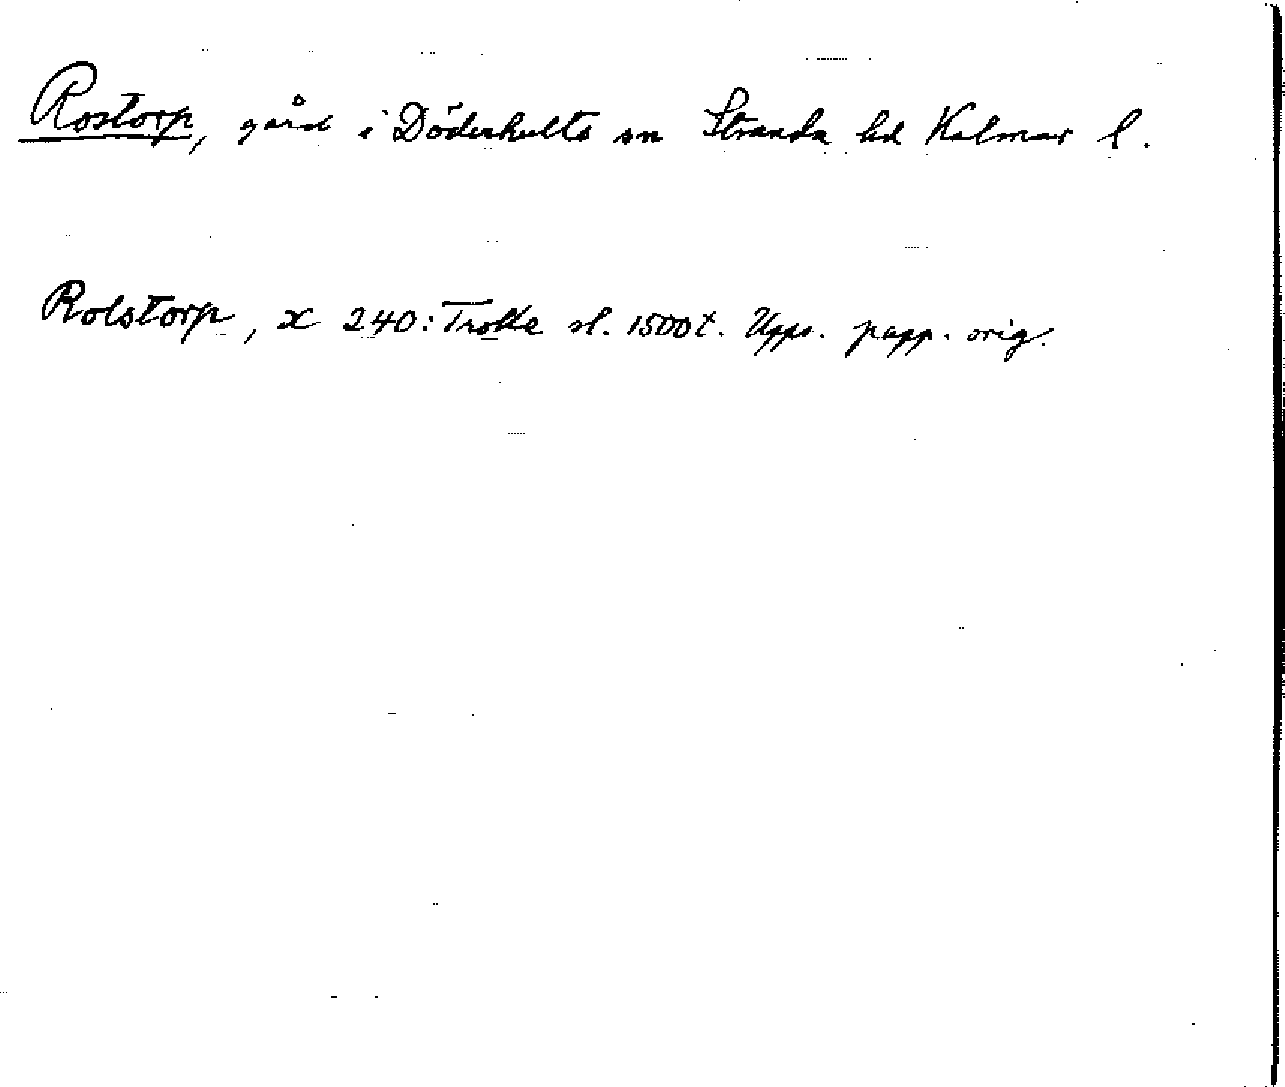 Rostorp, gård i Döderhults sn Stranda hd Kalmar l.
Rolstorp, x 240: Trolle sl. 1500t. Upps. papp. orig.